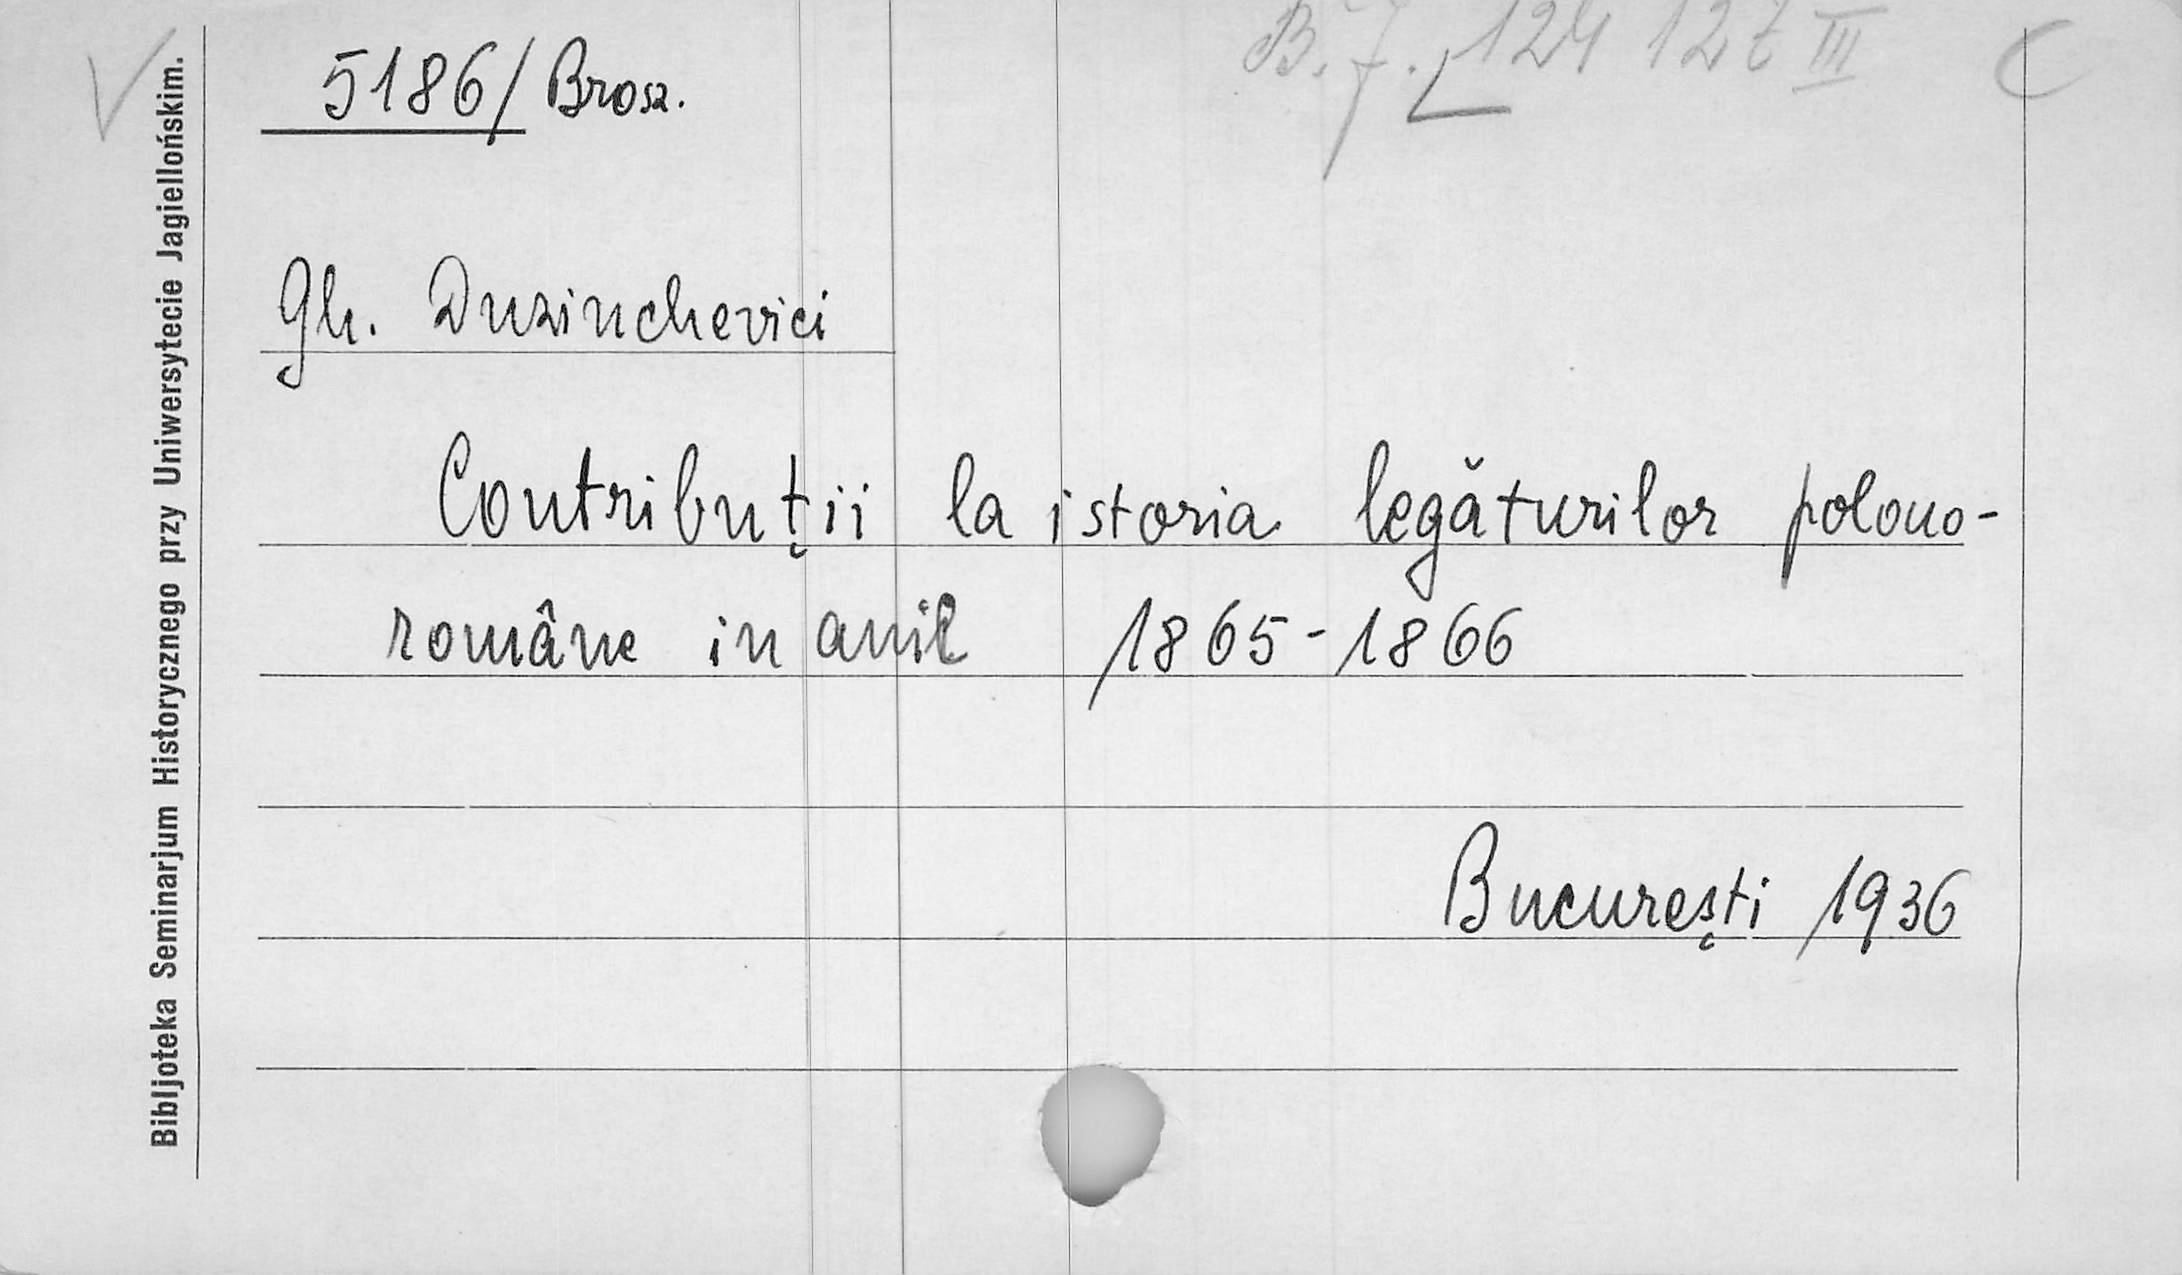 B. J. 124 127 III C
5186/Brosz.
Gh. Duzinchevici
Contribuţii la istoria legăturilor polono-
române in anii 1865-1866
Bucureşti 1936
Bibljoteka Seminarjum Historycznego przy Uniwersytecie Jagiellońskim.